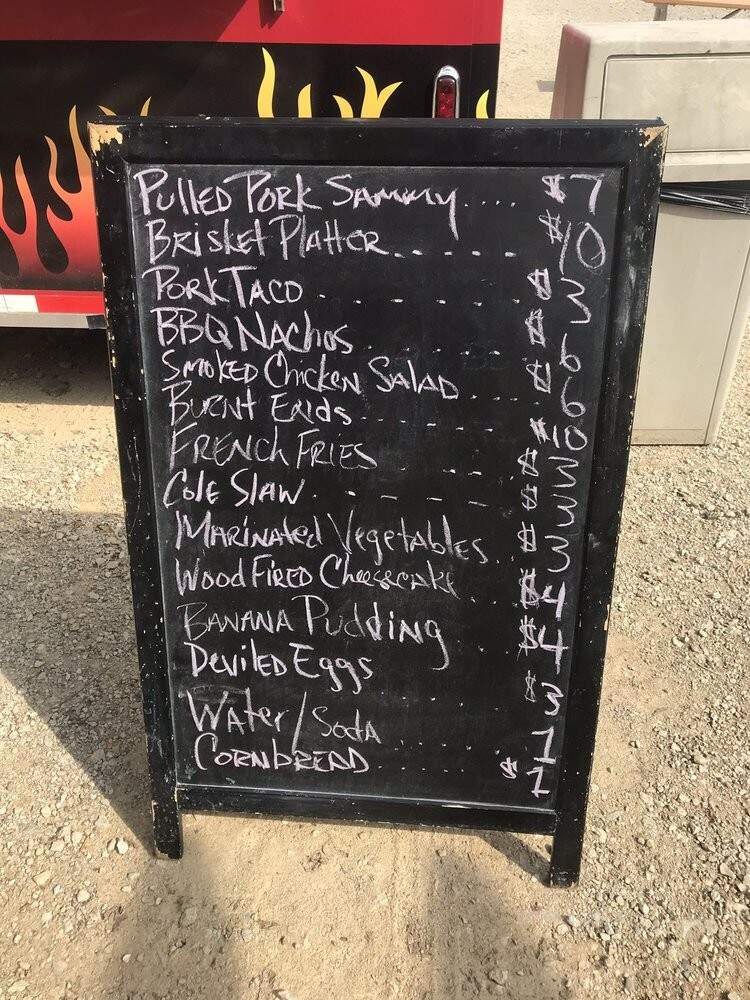 Pulled Pork Sammy.... $7
Brisket Platter..... $10
Pork Taco...... $3
BBQ Nachos...... $6
Smoked Chicken Salad... $6
Burnt Ends..... $10
French Fries.... $3
Cole Slaw..... $3
Marinated Vegetables.. $3
Wood Fired Cheesecake.. $4
Banana Pudding... $4
Deviled Eggs.... $3
Water/Soda.... 1
Cornbread..... $1